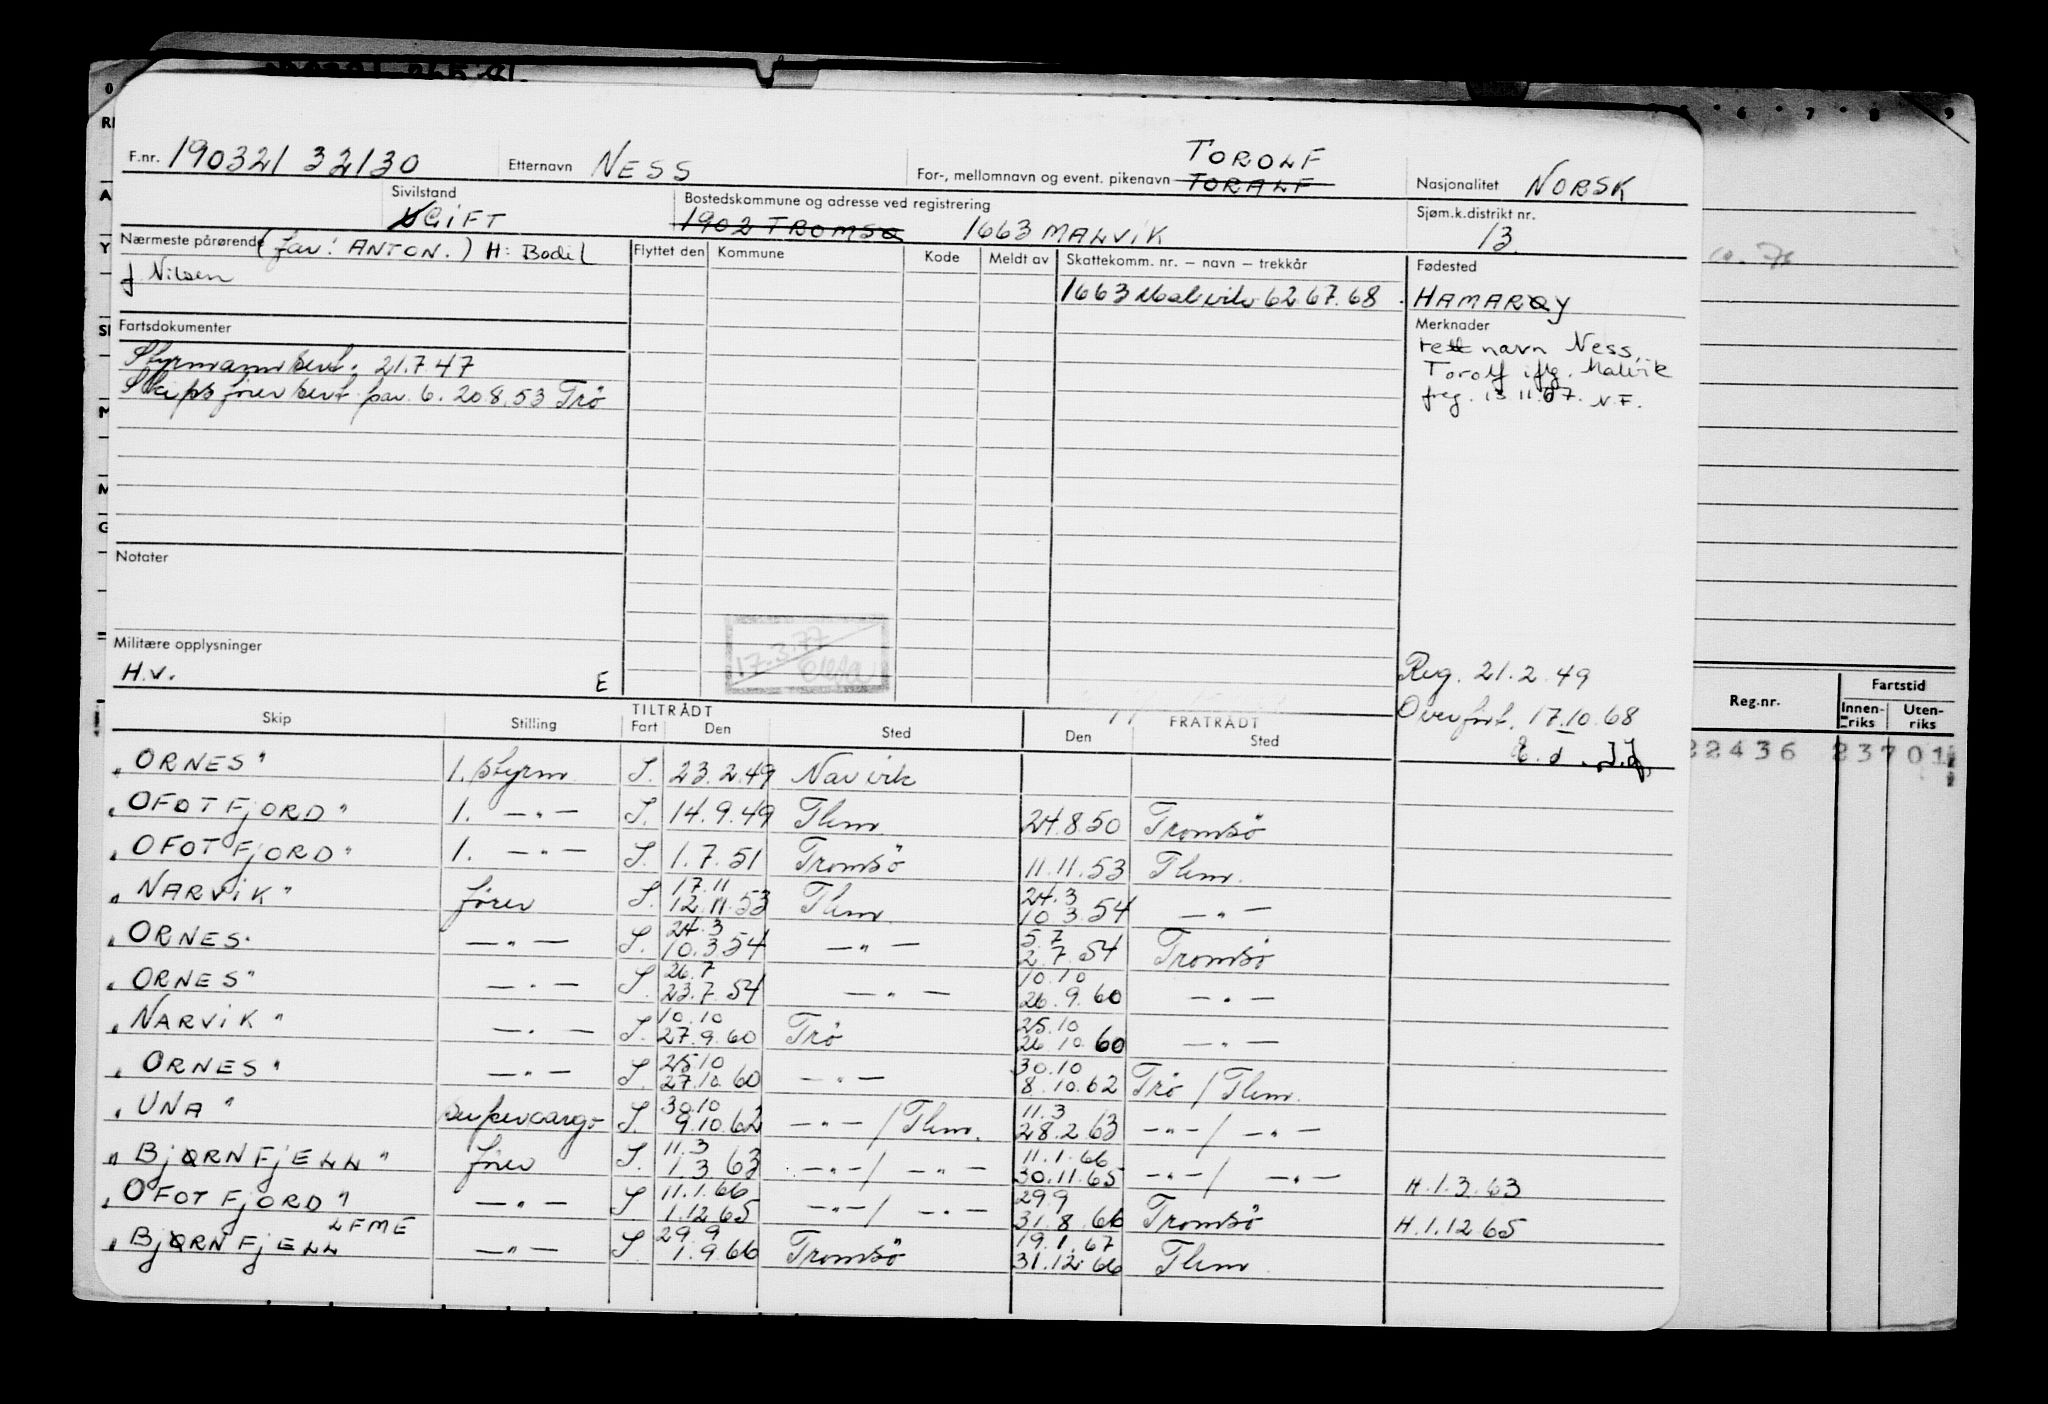 F.nr. 190321 32130 Etternavn NESS For-, mellomnavn og event. pikenavn TORALF TOROLF Nasjonalitet NORSK
Sivilstand UGIFT
Bostedskommune og adresse ved registrering
1902 TROMSØ 1663 MALVIK
Sjøm.k.distrikt nr.
13.
Nærmeste pårørende (far: ANTON.) H: Bodil
f Nilsen
Flyttet den Kommune Kode Meldt av Skattekomm. nr. – navn – trekkår
1663 Malvik 62.67.68
Fødested
HAMARØY
Fartsdokumenter
Styrmannsert. 21.7.47
Skipsførersert. par. 6. 20.8.53 Trö
Merknader
rett navn Ness,
Torolf iflg. Malvik
freg. 13.11.67. N.F.
Notater
17.3.77
Militære opplysninger
H.V. E
Reg. 21.2.49
Overført. 17.10.68
TILTRÅDT FRATRÅDT
Skip Stilling Fart Den Sted Den Sted
"ORNES" 1. styrm. S. 23.2.49 Narvik
"OFOTFJORD" 1. —"— S. 14.9.49 Thm. 24.8.50 Tromsö
"OFOTFJORD" 1. —"— S. 1.7.51 Tromsö 11.11.53 Thm.
"NARVIK" fører S. 17.11 12.11.53 Thm. 24.3 10.3.54 —"—
"ORNES" —"— S. 24.3 10.3.54 —"— 5.7 2.7.54 Tromsö
"ORNES" —"— S. 26.7 23.7.54 —"— 10.10 26.9.60 —"—
"NARVIK" —"— S. 10.10 27.9.60 Trö 25.10 26.10.60 —"—
"ORNES" —"— S. 25.10 27.10.60 —"— 30.10 8.10.62 Trö / Thm.
"UNA" supercargo S. 30.10 9.10.62 —"— / Thm. 11.3 28.2.63 —"— / —"—
"BJØRNFJELL" fører S. 11.3 1.3.63 —"— / —"— 11.1.66 30.11.65 —"— / —"— H.1.3.63
"OFOTFJORD" —"— S 11.1.66 1.12.65 —"— / —"— 29.9 31.8.66 Tromsö H.1.12.65
LFME
"BJØRNFJELL —"— S 29.9 1.9.66 Tromsö 19.1.67 31.12.66 Thm.
Reg.nr. Fartstid
Innen-riks Uten-riks
22436 23701
6 7 8 9